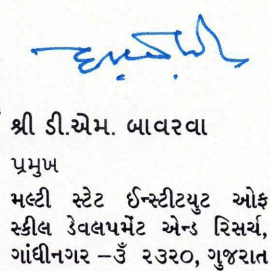 શ્રી ડી.એમ. બાવરવા
પ્રમુખ
મલ્ટી સ્ટેટ ઈન્સ્ટીટયુટ ઓફ
સ્કીલ ડેવલપમેંટ એન્ડ રિસર્ચ,
ગાંધીનગર –૩ૅં ૨૩૨૦, ગુજરાત